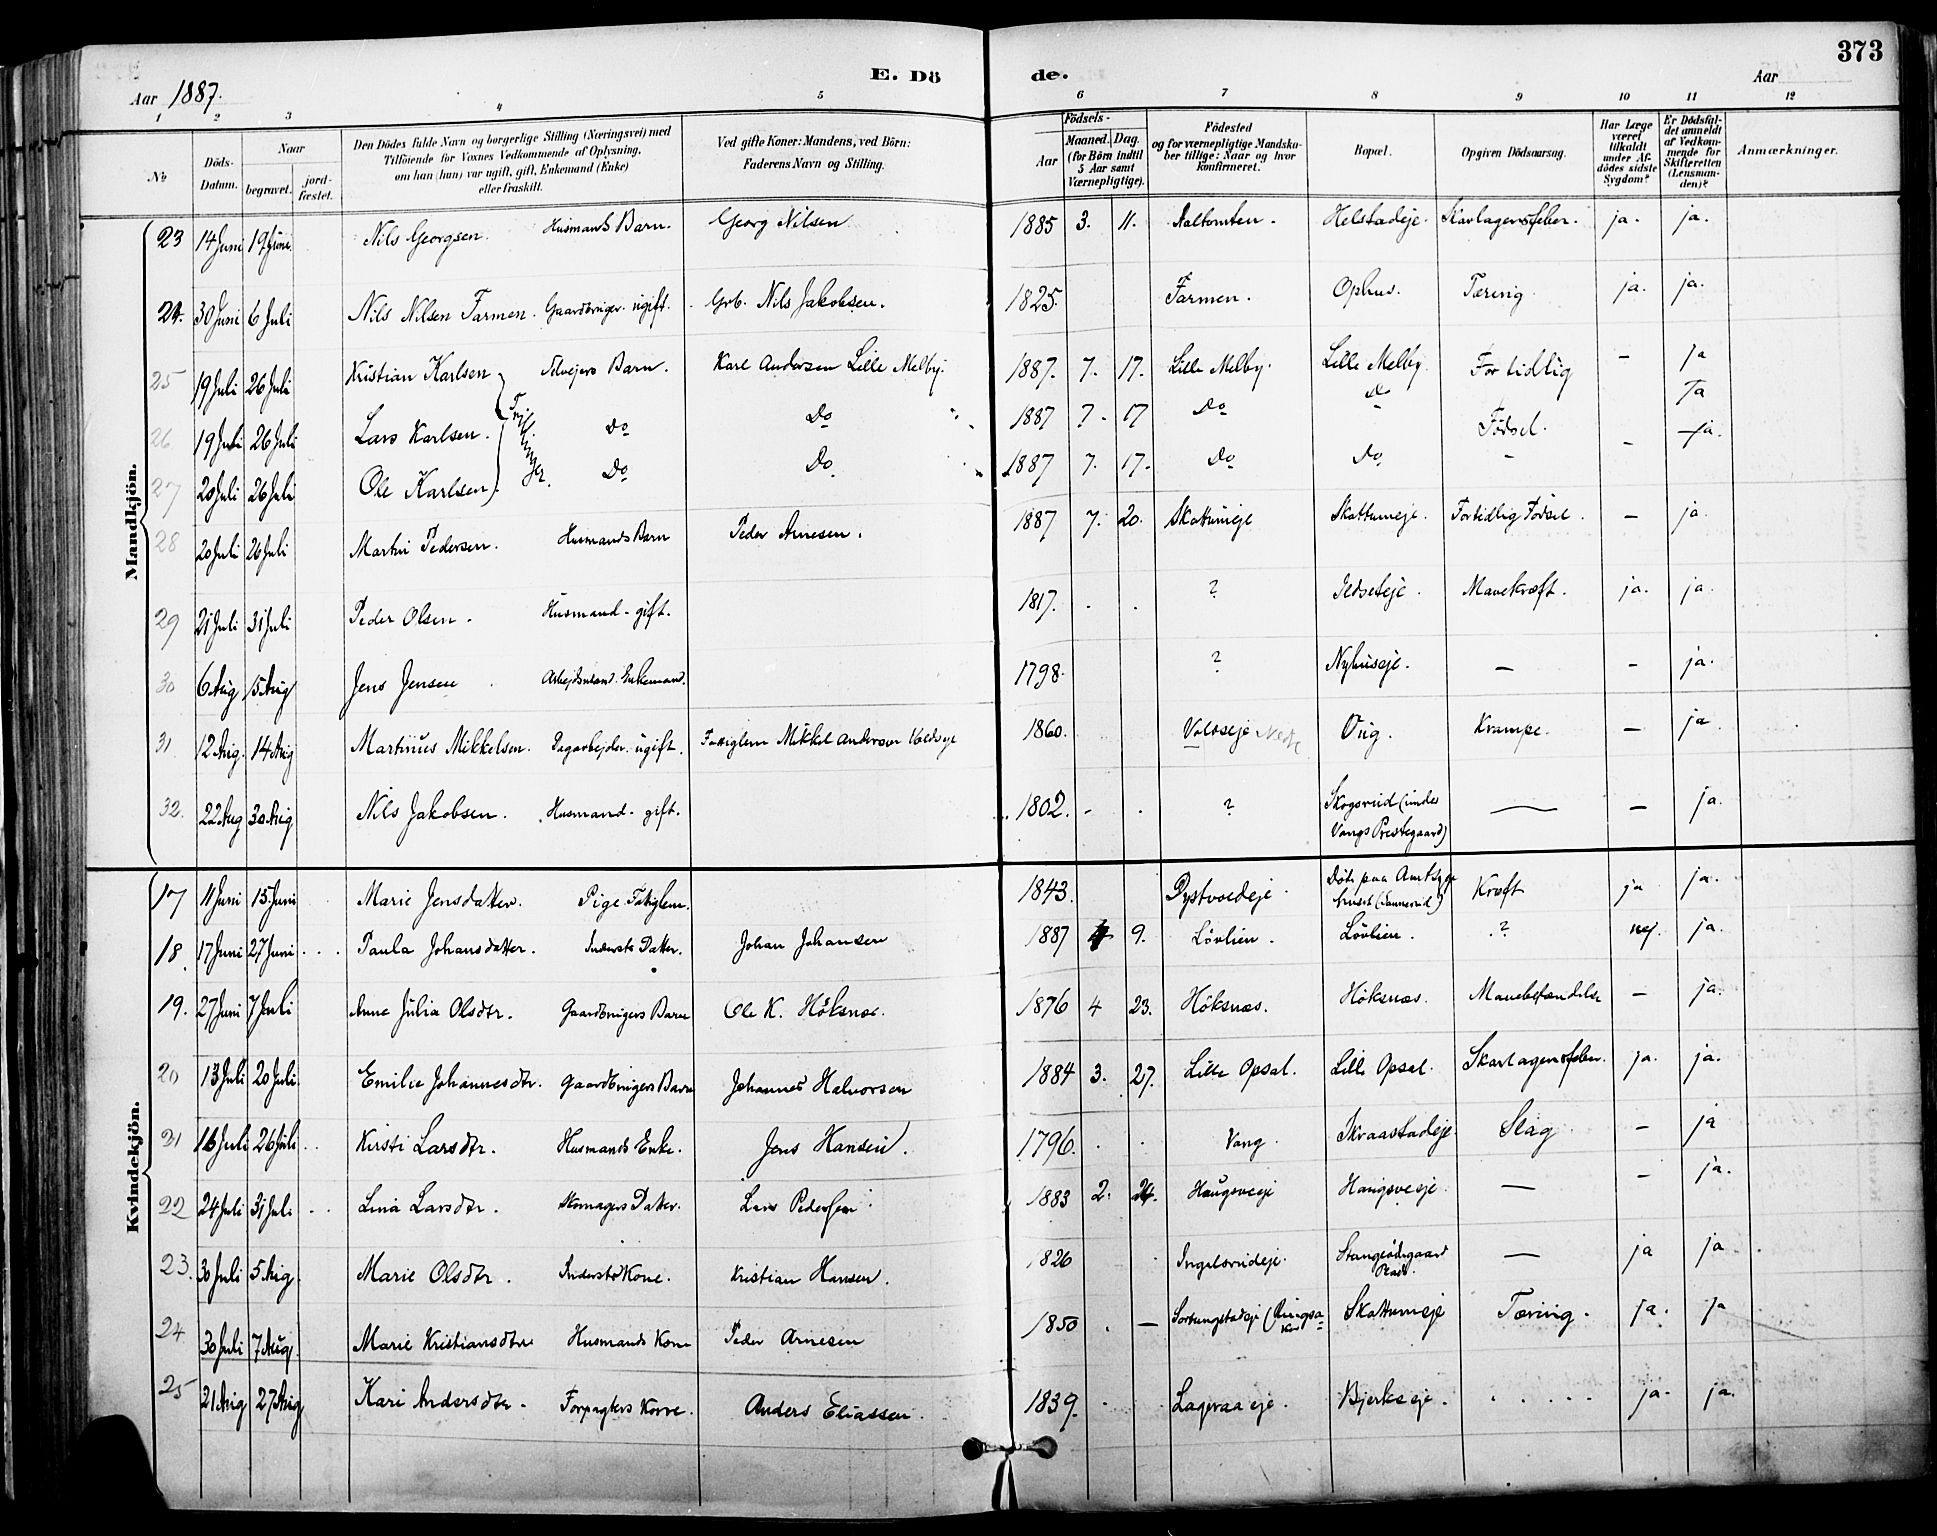 373
Aar 1887.
E. Dö
de.
Aar
1 2 3 4 5 6 7 8 9 10 11 12
No
Döds-Datum.
Naar
begravet.
jord-fæstet.
Den Dödes fulde Navn og borgerlige Stilling (Næringsvei) med
Tilföiende for Voxnes Vedkommende af Oplysning,
om han (hun) var ugift, gift, Enkemand (Enke)
eller fraskilt.
Ved gifte Koner: Mandens, ved Börn:
Faderens Navn og Stilling.
Födsels-
Aar
Maaned. Dag.
(for Börn indtil
5 Aar samt
Værnepligtige).
Födested
og for værnepligtige Mandska-
ber tillige: Naar og hvor
konfirmeret.
Bopæl.
Opgiven Dödsaarsag.
Har Læge
været
tilkaldt
under Af-
dödes sidste
Sygdom?
Er Dödsfal-
det anmeldt
af Vedkom-
mende for
Skifteretten
(Lensman-
den)?
Anmærkninger.
Mandkjön.
23 14 Juni 19 Juni Nils Georgsen. Husmands Barn. Georg Nilsen 1885 3. 11. Aaltomten. Helstadeje. Skarlagensfeber. ja. ja.
24. 30 Juni 6 Juli Nils Nilsen Farmen. Gaardbruger. ugift. Grb. Nils Jakobsen. 1825. Farmen. Ophus. Tæring. ja. ja.
25 19 Juli 26 Juli Kristian Karlsen Selvejers Barn. Karl Andersen Lille Melby. 1887. 7. 17. Lille Melby. Lille Melby. For tidlig — ja
26 19 Juli 26 Juli Lars Karlsen. Trillinger. Do Do 1887 7. 17 Do Do Fødsel. Ja
27 20 Juli 26 Juli Ole Karlsen Do Do 1887 7. 17. Do Do - - ja.
28 20 Juli 26 Juli Martin Pedersen. Husmands Barn Peder Arnesen. 1887 7. 20. Skattumeje Skattumeje. Fortidlig Fødsel. — ja.
29 21 Juli 31 Juli Peder Olsen. Husmand - gift. 1817. ? Jedseteje. Mavekræft. ja. ja.
30 6 Aug 15 Aug Jens Jensen Arbejdsmand. Enkemand. 1798. ? Nyhuseje. — - ja.
31 12 Aug. 14 Aug Martinus Mikkelsen. Dagarbejder. ugift. Fattiglem Mikkel Andersen Voldseje 1860. Voldseje Oug. Krampe. — ja
32. 22 Aug 30 Aug Nils Jakobsen. Husmand - gift. 1802. - ? Skogsrud (under
Vangs Prestegaard) — — ja.
Kvindekjön.
17 11 Juni 15. Juni Marie Jensdatter. Pige Fatiglem. 1843. Dystvoldeje Död paa Amtssyge
huset (Sannerud) Kræft ja ja.
18. 17 Juni 27 Juni Paula Johansdatter. Indersts Datter. Johan Johansen 1887 4 9. Lövlien. Lövlien. ? nej. ja.
19. 27 Juni 7 Juli Anne Julia Olsdtr. Gaardbrugers Barn Ole K. Höksnæs. 1876 4 23. Höksnæs. Höksnæs. Mavebetændelse — ja.
20 13 Juli 20 Juli. Emilie Johannesdtr. Gaardbrugers Barn Johannes Halvorsen 1884 3. 27. Lille Opsal. Lille Opsal. Skarlagensfeber. ja. ja.
21 16 Juli 26 Juli Kirsti Larsdtr. Husmands Enke. Jens Hansen. 1796. Vang. Skraastadeje. Slag - ja
22 24 Juli 31 Juli Lina Larsdtr. Skomagers Datter. Lars Pedersen 1883 2. 24. Haugsveje Haugsveje. — - ja.
23. 30 Juli 5 Aug. Marie Olsdtr. Inderstskone. Kristian Hansen. 1826 Ingelsrudeje. Stangsödegaard — ja ja
24 30 Juli 7 Aug. Marie Kristiansdtr Husmands Kone Peder Arnesen 1850 — Skattumeje Tæring. ja. ja
25 21 Aug 27 Aug Kari Andersdtr. Forpagters Kone. Anders Eliassen. 1839. Lageraaeje. Bjerkeeje. ja. ja.